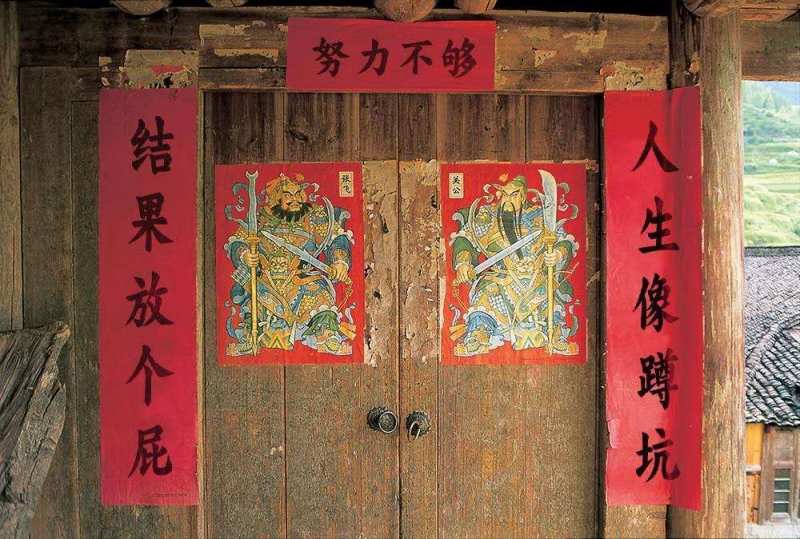 努力不够
人生像蹲坑
结果放个屁
张飞
关公